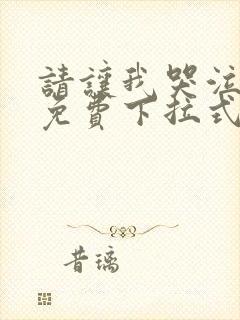 請讓我哭泣
免費下拉式
昔璃